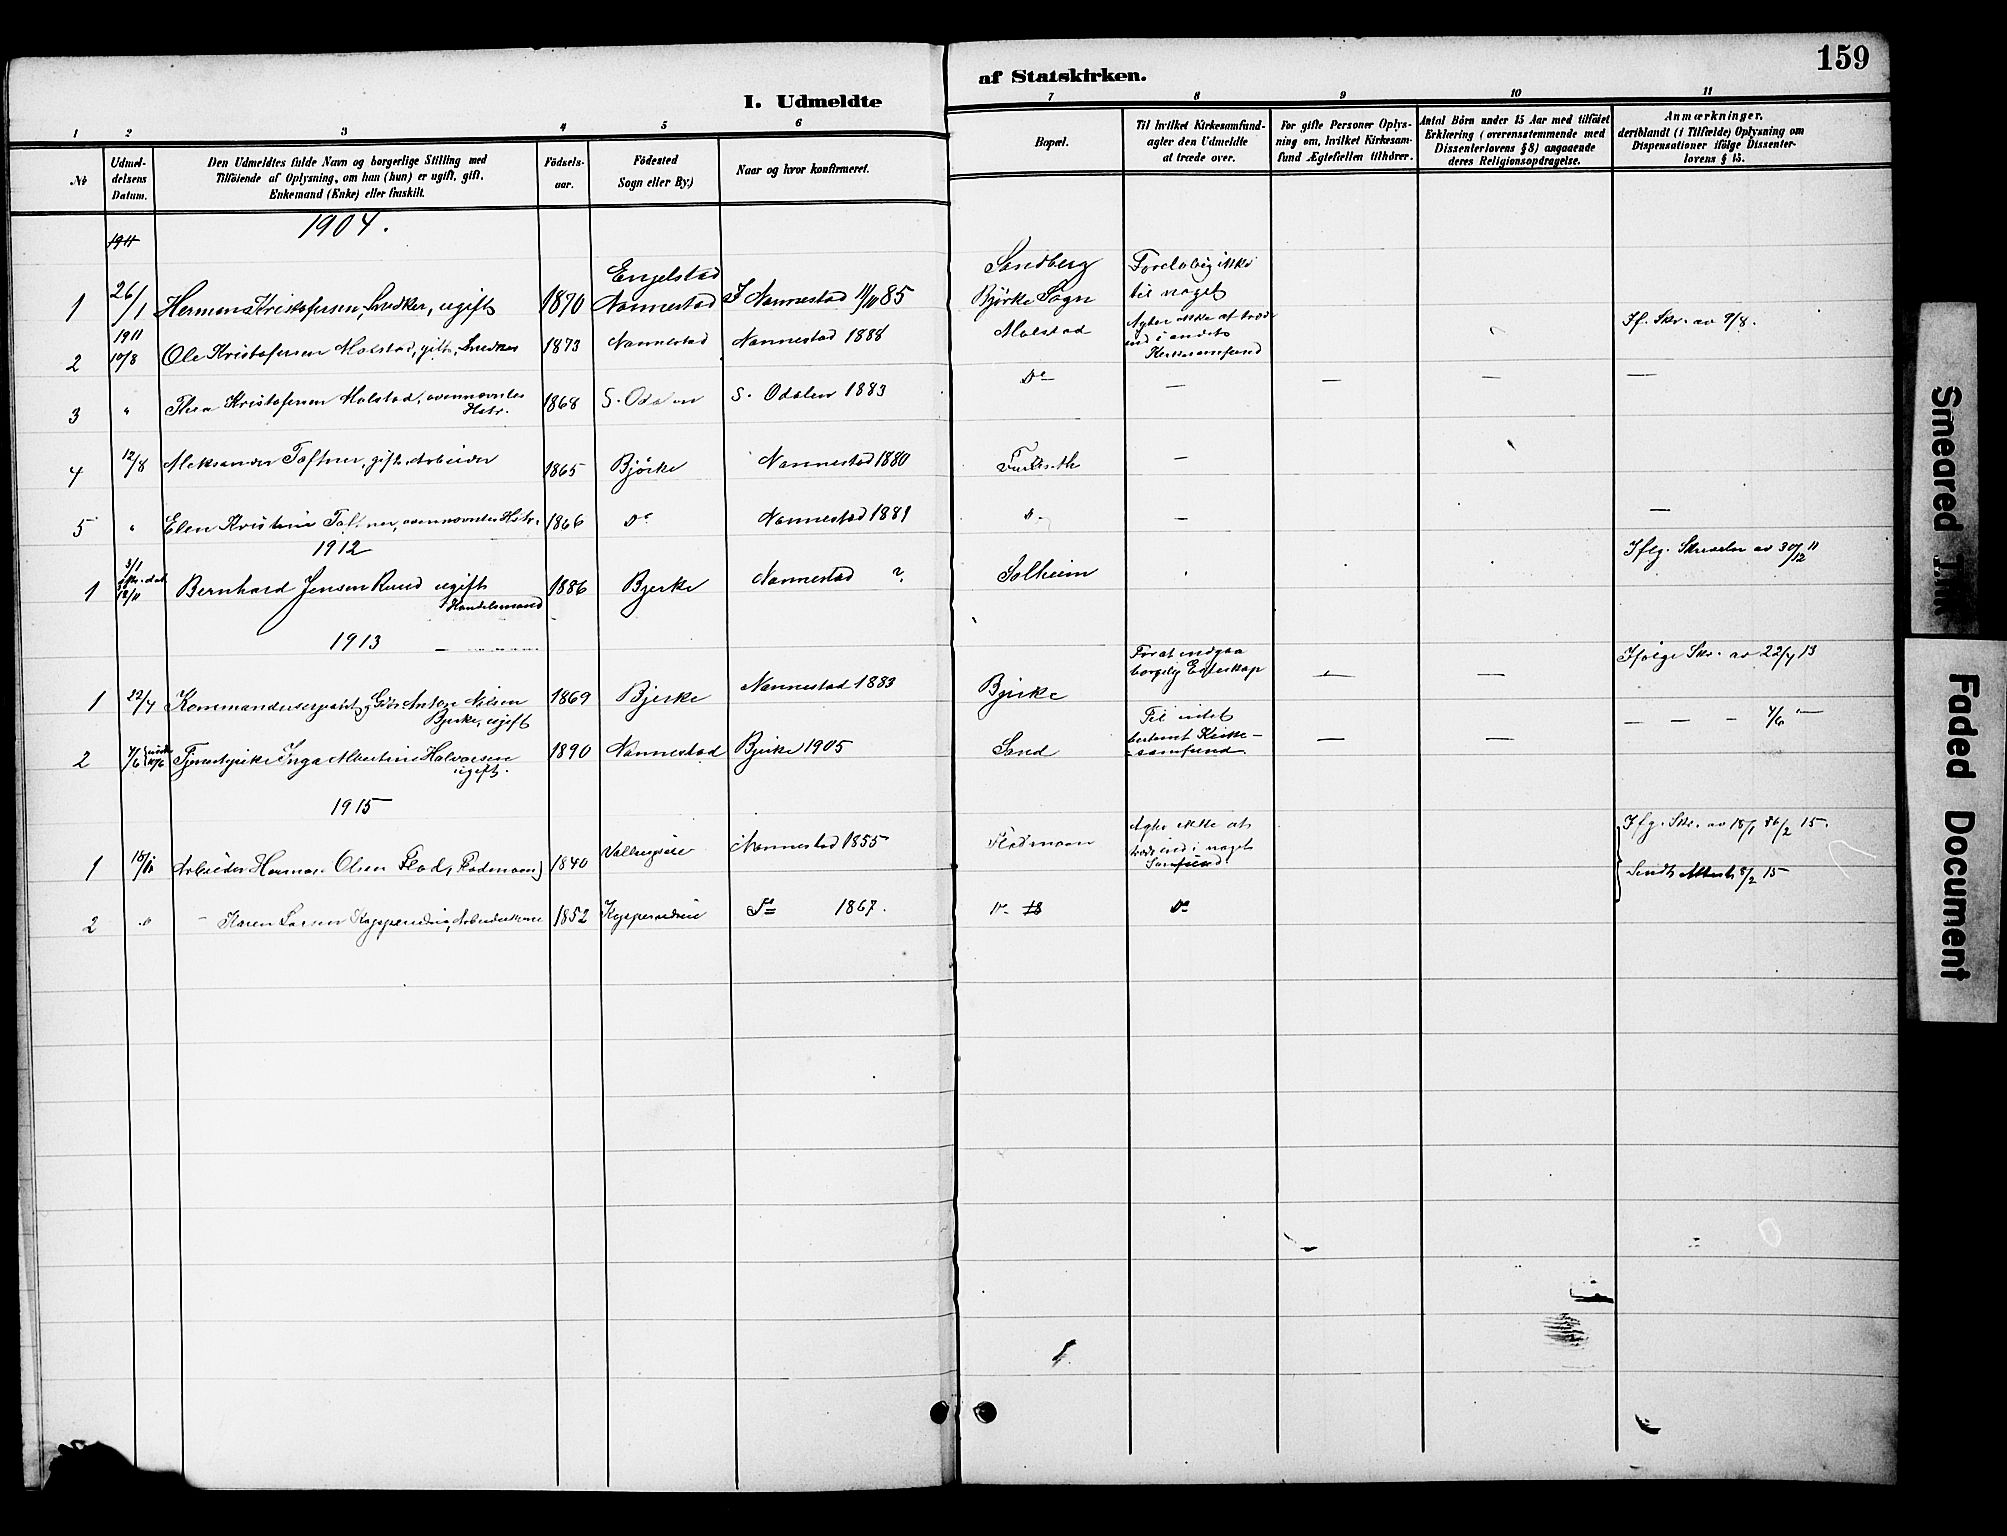 159
I. Udmeldte
af Statskirken.
1 2 3 4 5 6 7 8 9 10 11
№
Udmel-
delsens
Datum.
Den Udmeldtes fulde Navn og borgerlige Stilling med
Tilföiende af Oplysning, om han (hun) er ugift, gift,
Enkemand (Enke) eller fraskilt.
Födsels-
aar.
Födested
Sogn eller By.)
Naar og hvor konfirmeret.
Bopæl.
Til hvilket Kirkesamfund-
agter den Udmeldte
at træde over.
For gifte Personer Oplys-
ning om, hvilket Kirkesam-
fund Ægtefællen tilhörer.
Antal Börn under 15 Aar med tilföiet
Erklæring (overensstemmende med
Dissenterlovens § 8) angaaende
deres Religionsopdragelse.
Anmærkninger,
deriblandt (i Tilfælde) Oplysning om
Dispensationer ifölge Dissenter-
lovens § 15.
1904.
1911
Engelstad
Sandberg
Foreløbig ikke
1 26/1 Herman Kristofersen, Snedker, ugift 1870 Nannestad I Nannestad 11/11 85 Bjørke Sogn til noget
1911
2 10/8 Ole Kristofersen Molstad, gift, Snedker 1873 Nannestad Nannestad 1888 Molstad Agter ikke at træde
ind i andet
Kirkesamfund
If. Skr. av 9/8.
3 " Thea Kristofersen Molstad, ovennævntes
Hstr. 1868 S. Odalen S. Odalen 1883 Do — — — —
4 12/8 Aleksander Toftner, gift, Arbeider 1865 Bjørke Nannestad 1880 —
5 " Elen Kristine Toftner, ovennævntes Hstr. 1866 Do Nannestad 1881 D. — —
1912
1 3/1 Bernhard Jensen Ruud ugift
Handelsmand 1886 Bjerke Nannestad ? Solheim Iflg. Skrivelse av 30/12 11
1913
1 22/4 Kommandersergeant, Anton Nilsen
Bjerke, ugift 1869 Bjerke Nannestad 1883 Bjerke For at indgaa
borgelig Egteskap — — Ifølge Skr. av 22/4 13
2 7/6 Tjenestepike Inga Albertine Halvorsen
ugift. 1890 Nannestad Bjerke 1905 Sand Til intet
bestemt Kirke-
samfund — — — — — 7/6 —
1915
1 18/1 Arbeider Herman Olsen Flad, Flademoen) 1840 Nannestad 1855 Agter ikke at
træde ind i noget
Samfund. Ifg. Skr. av 18/1 16/2 15.
Sendt Attest 8/2 15
2 " Karen Larsen 1852 Do 1867. Do Do
Smeared Ink
Faded Document